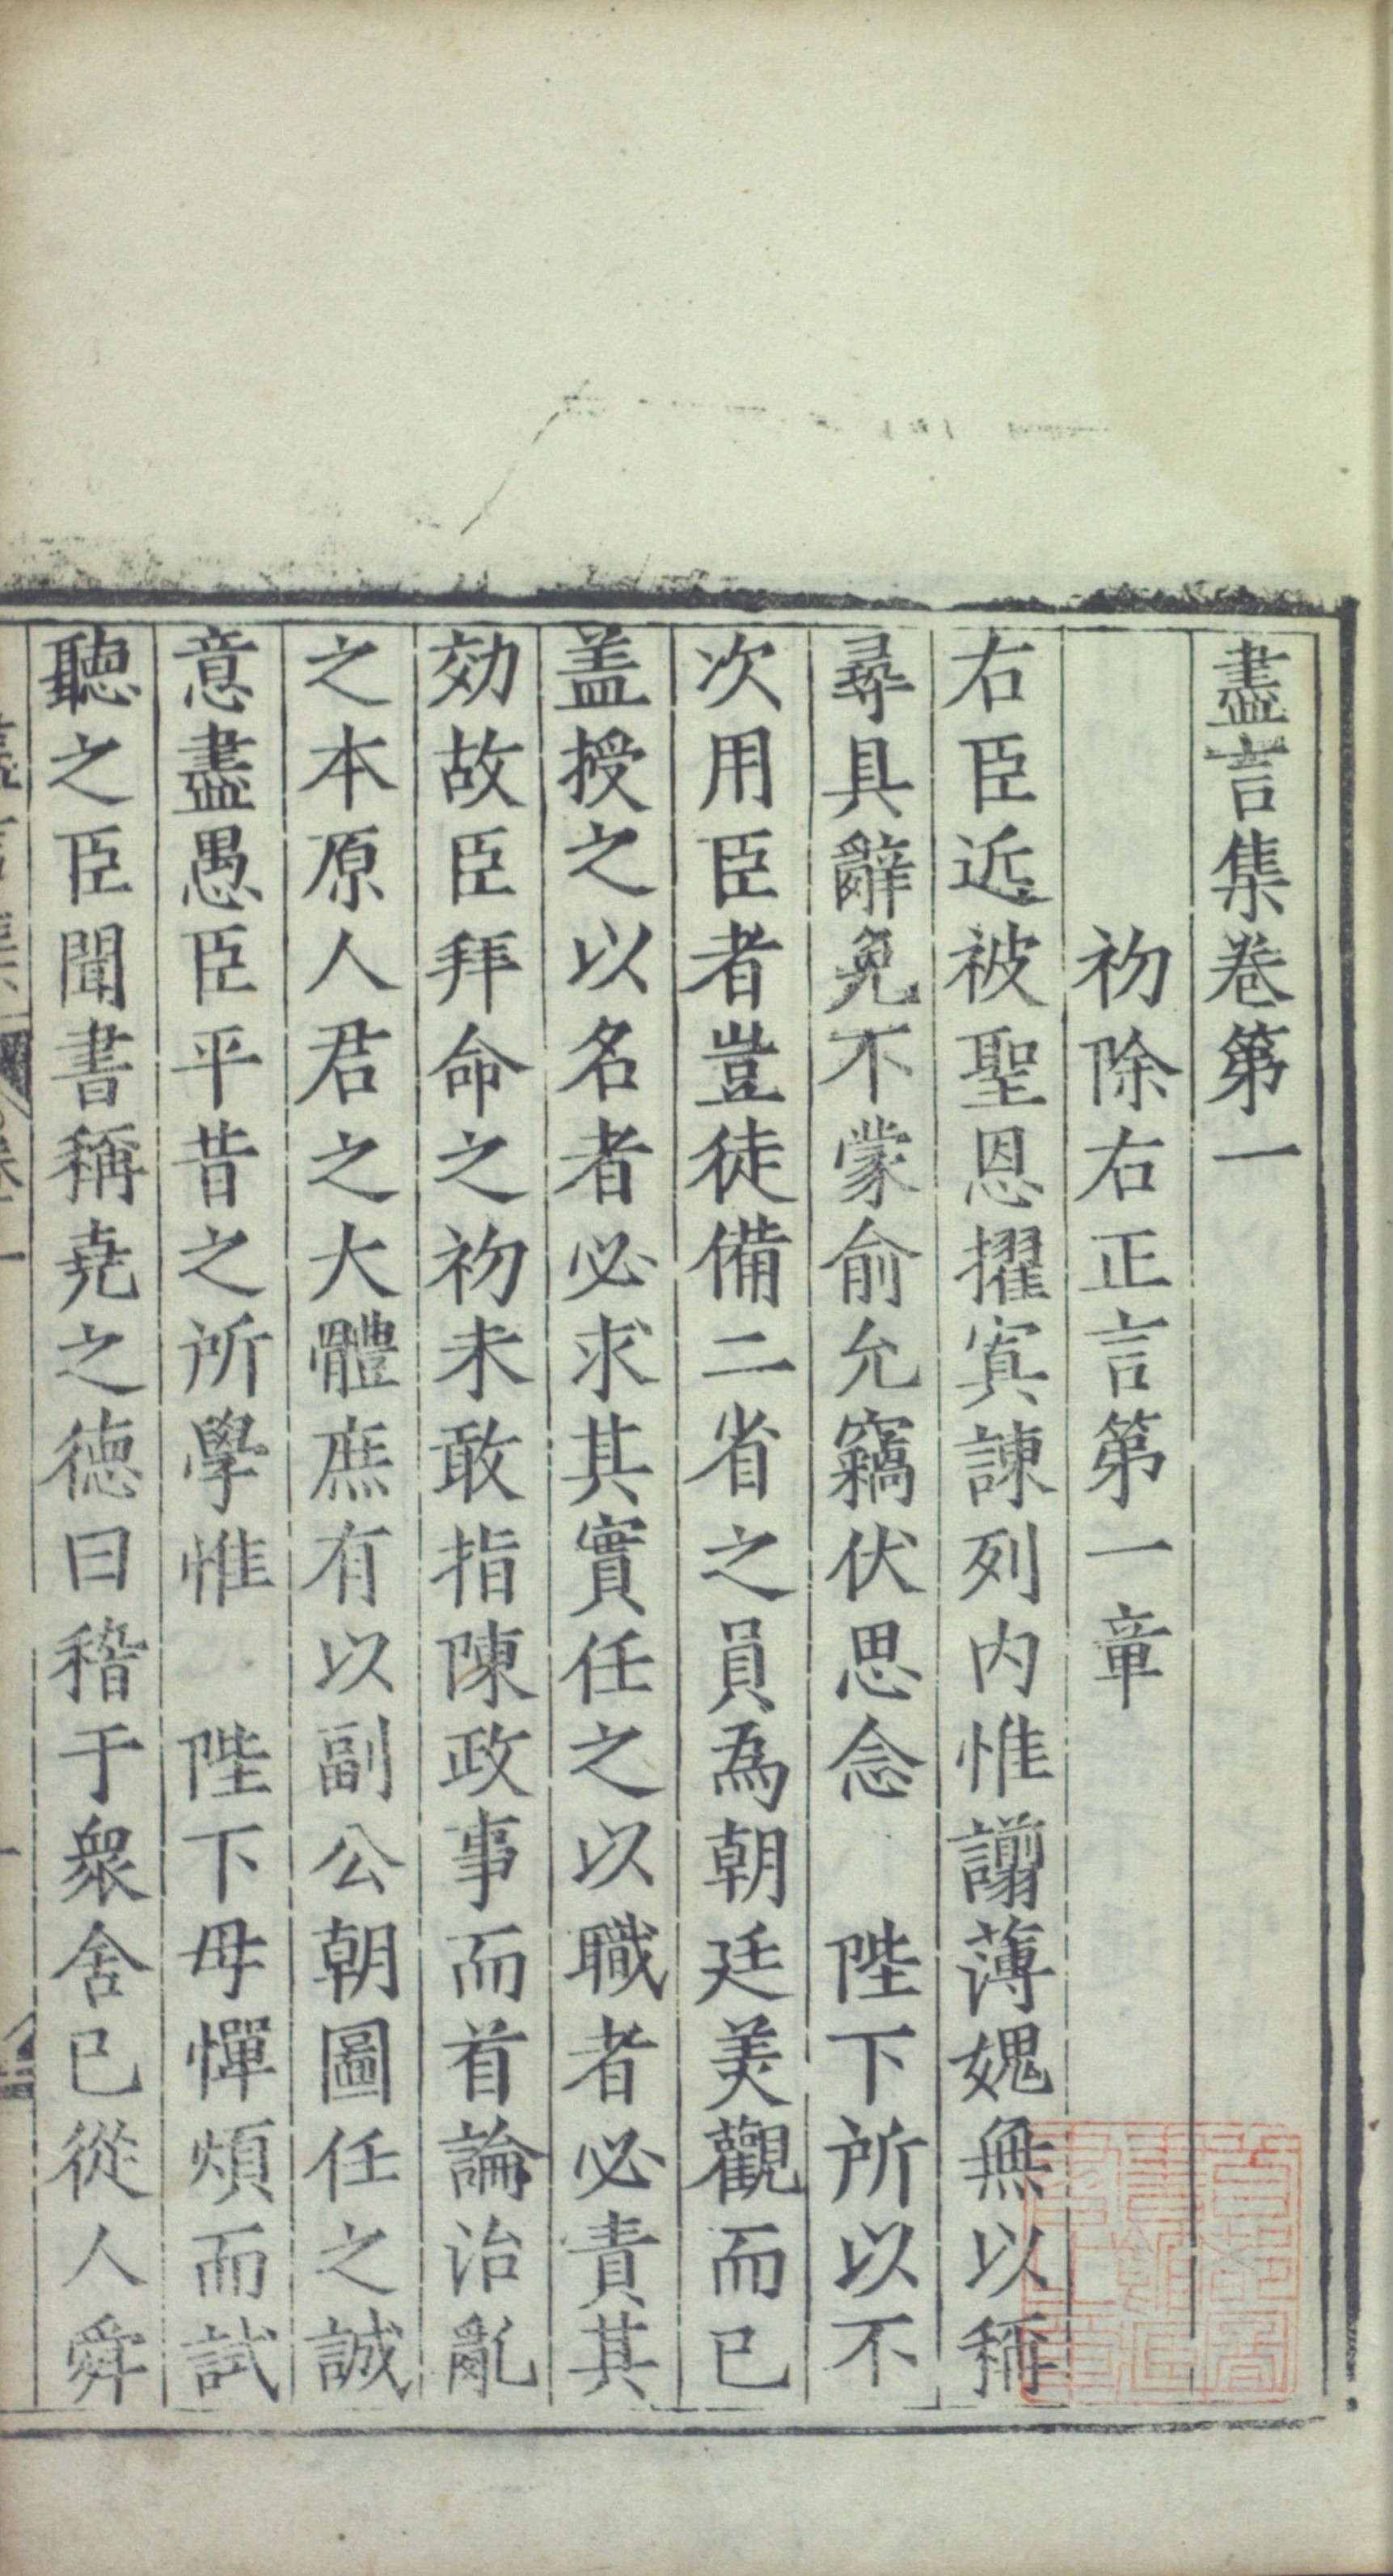 盡言集卷第一
初除右正言第一章
右臣近被聖恩擢寘諫列内惟譾薄媿無以稱
尋具辭免不蒙俞允竊伏思念　陛下所以不
次用臣者豈徒備二省之員為朝廷美觀而已
盖授之以名者必求其實任之以職者必責其
効故臣拜命之初未敢指陳政事而首論治亂
之本原人君之大體庶有以副公朝圖任之誠
意盡愚臣平昔之所學惟　陛下毋憚煩而試
聽之臣聞書稱堯之德曰稽于衆舍已從人舜